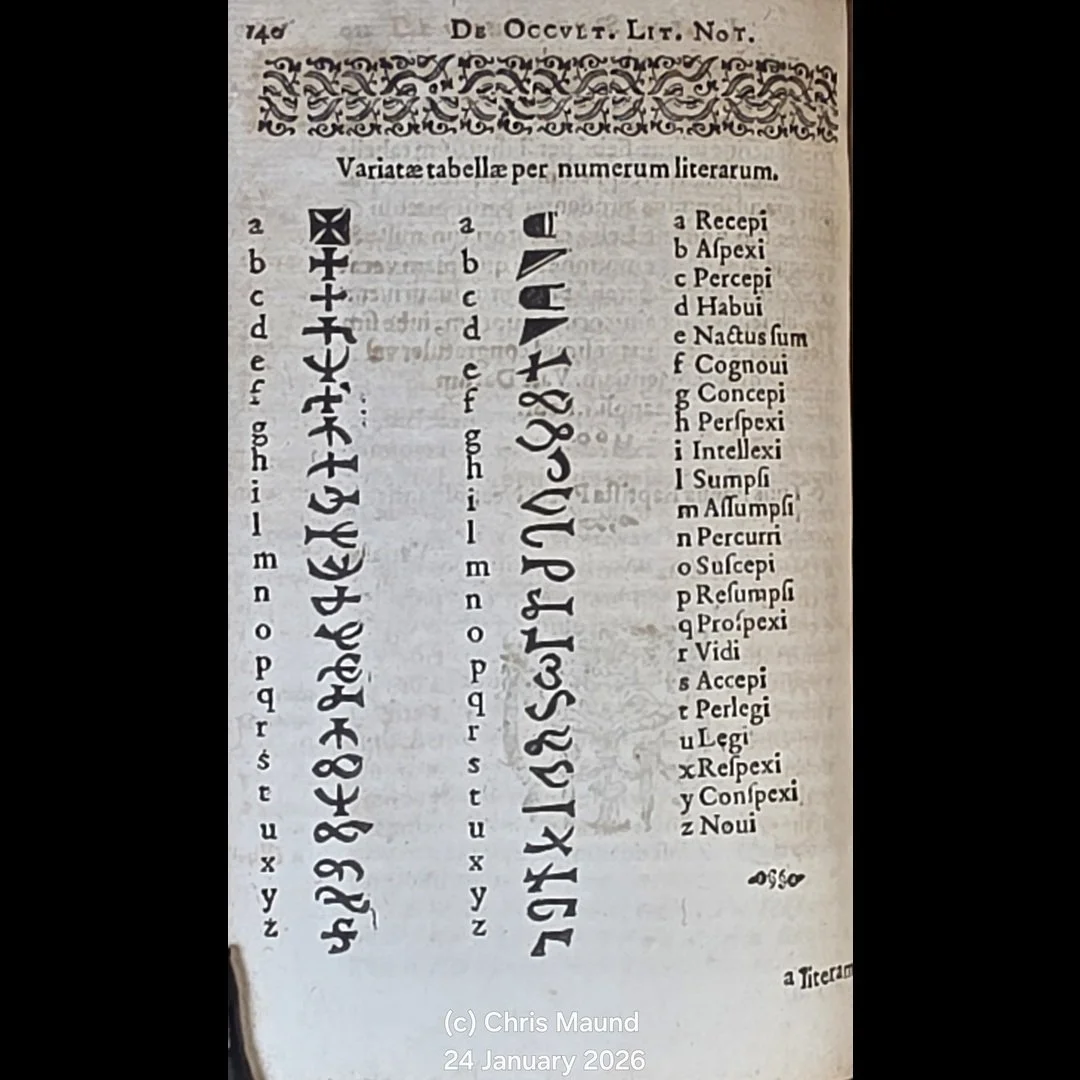 140 De Occvlt. Lit. Not.
Variatæ tabellæ per numerum literarum.
a a a Recepi
b b b Aſpexi
c c c Percepi
d d d Habui
e e e Nactus ſum
f f f Cognoui
g g g Concepi
h h h Perſpexi
i i i Intellexi
l l l Sumpſi
m m m Aſſumpſi
n n n Percurri
o o o Suſcepi
p p p Reſumpſi
q q q Proſpexi
r r r Vidi
s s s Accepi
t t t Perlegi
u u u Legi
x x x Reſpexi
y y y Conſpexi
z z z Noui
a literam
(c) Chris Maund
24 January 2026